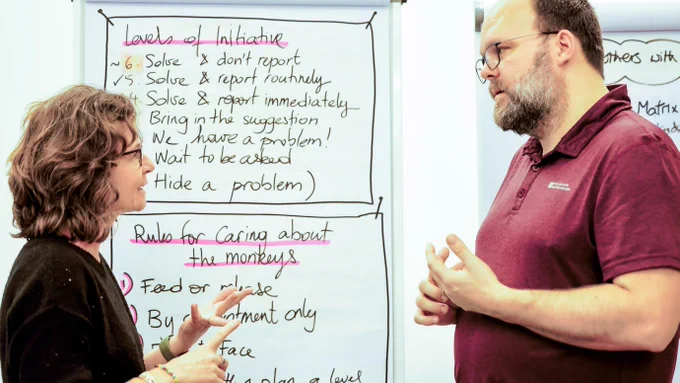 Levels of Initiative
~ 6 Solve & don't report
✓5 Solve & report routinely
Solve & report immediately
Bring in the suggestion
We have a problem!
Wait to be asked
Hide a problem)
Rules for Caring about
the monkeys
1) Feed or release
By only
Face
a plan a level
others with
Matrix